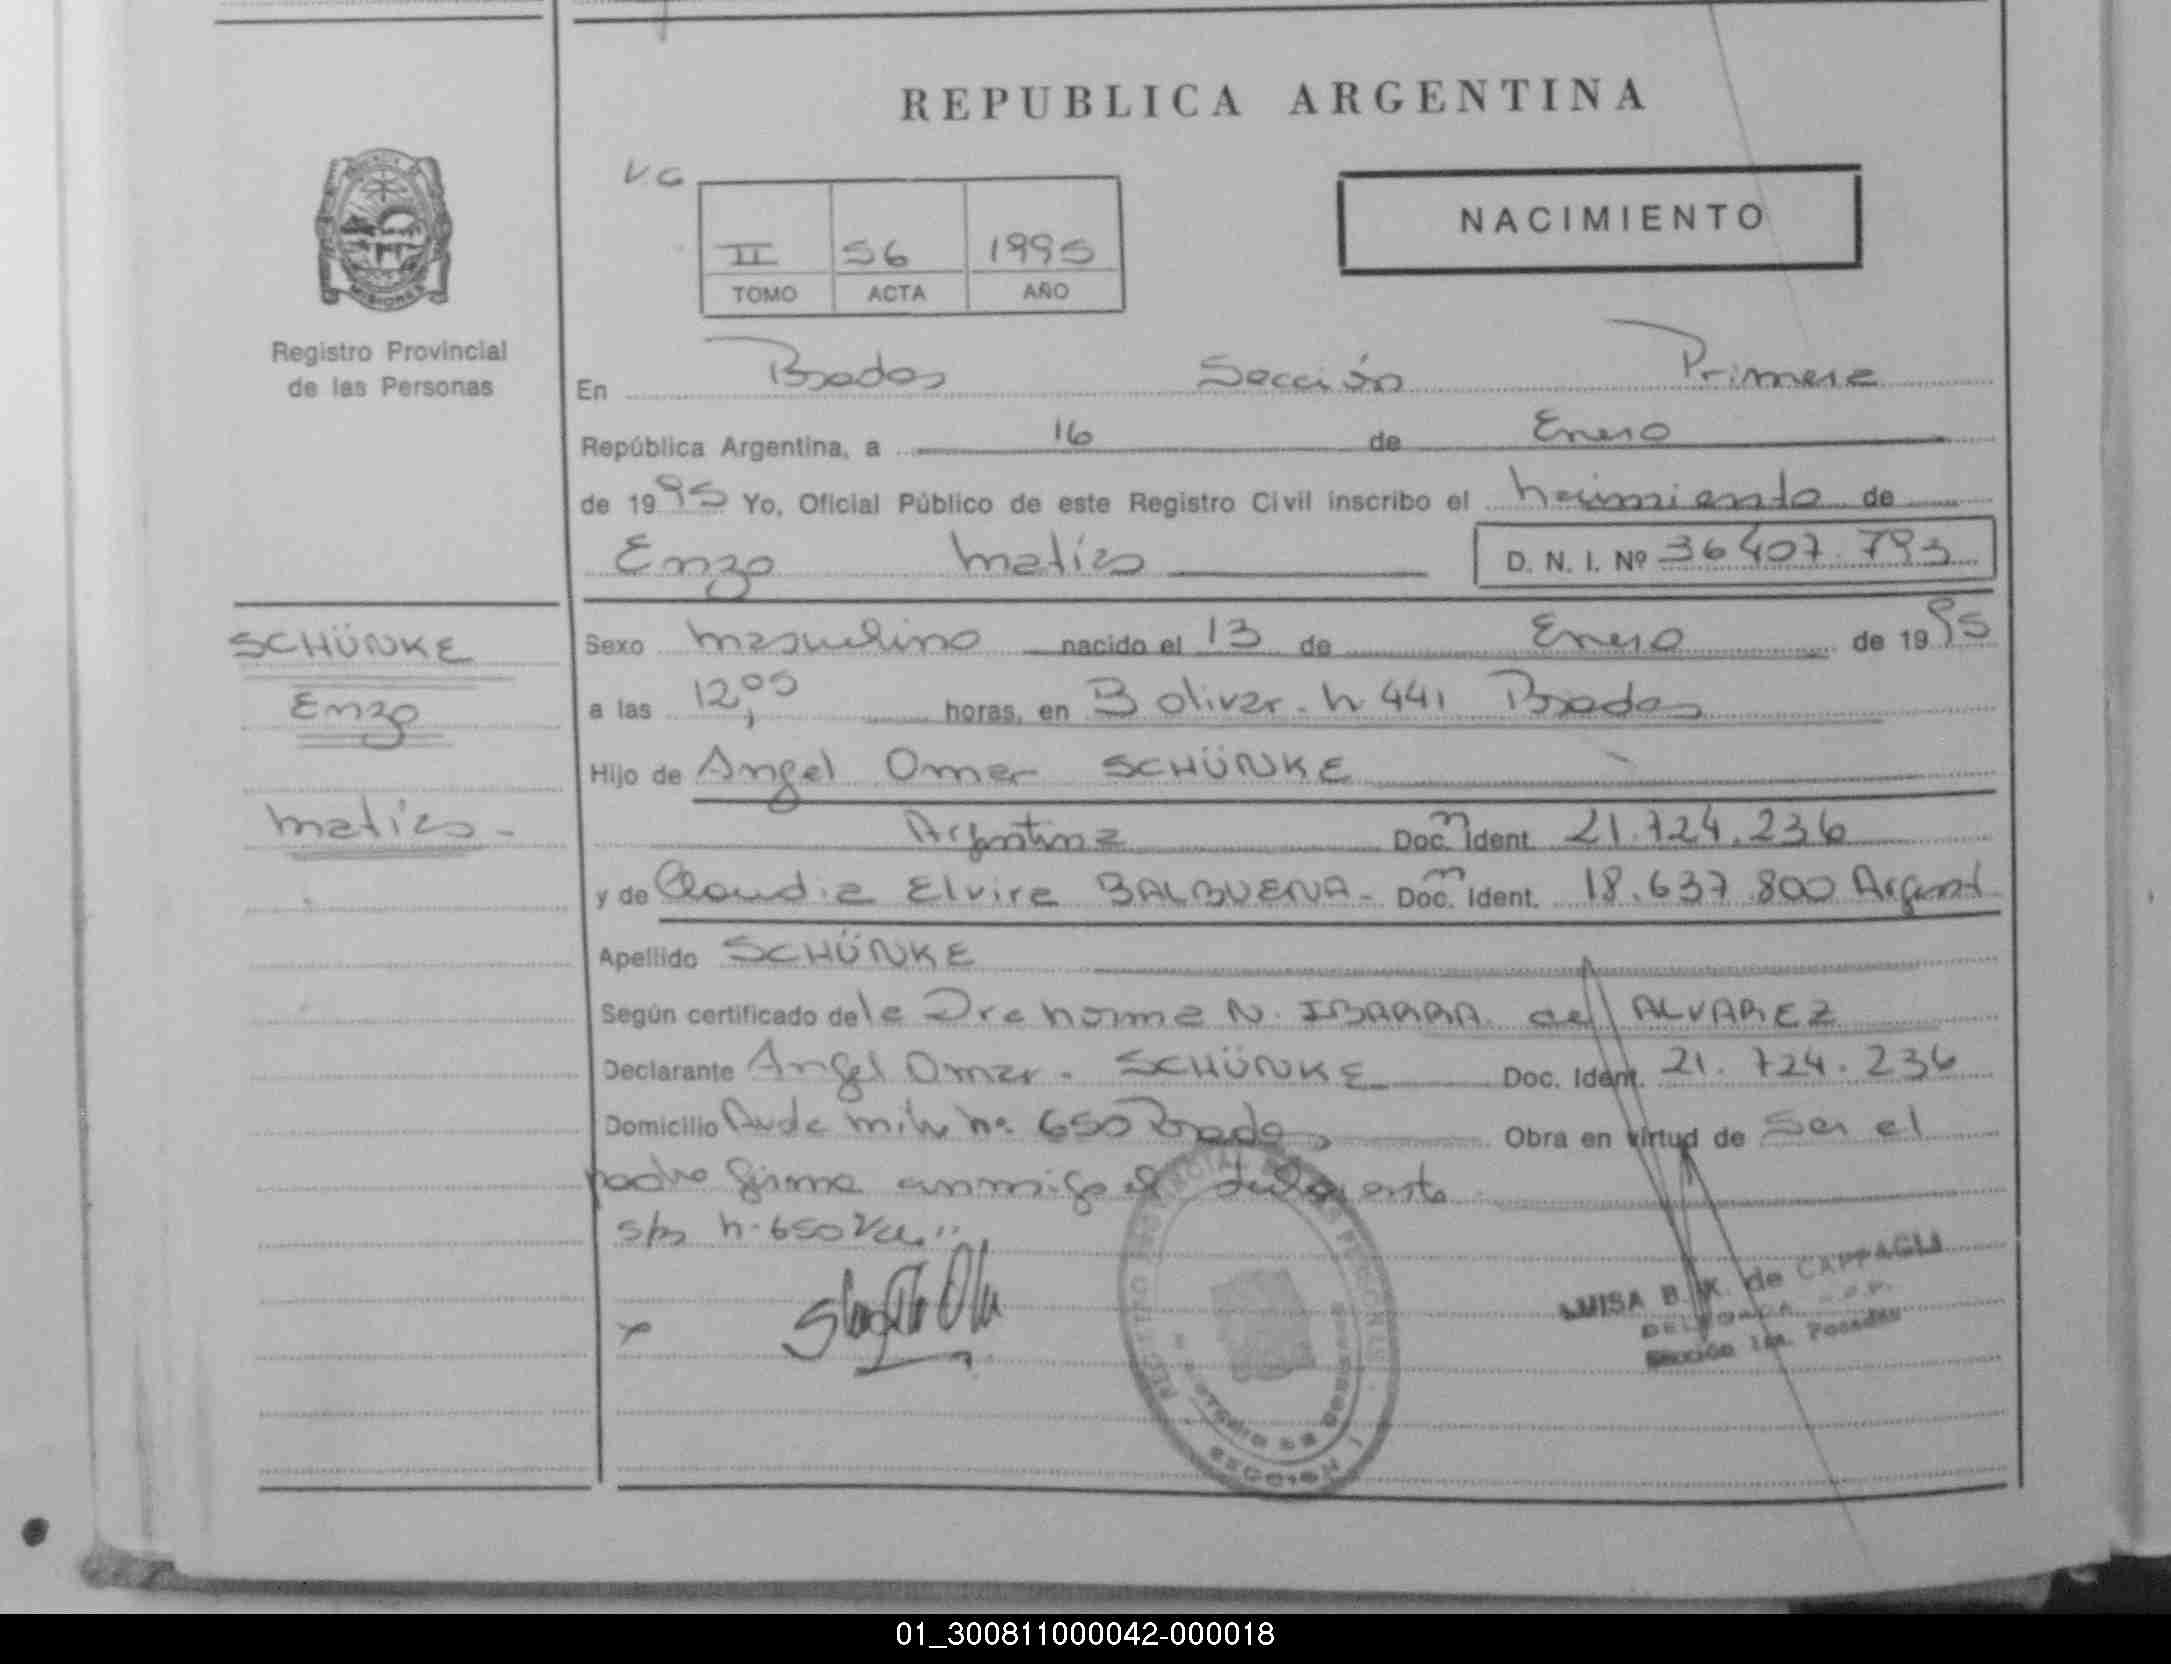 REPUBLICA ARGENTINA
MISIONES
Registro Provincial
de las Personas
V.G
II 56 1995
TOMO ACTA AÑO
NACIMIENTO
En Posadas Sección Primera
República Argentina, a 16 de Enero
de 1995 Yo, Oficial Público de este Registro Civil inscribo el nacimiento de
Enzo Matías D. N. I. Nº 36407.793
SCHÜNKE
Enzo
Matías -
Sexo masculino nacido el 13 de Enero de 1995
a las 12,05 horas, en Bolivar. N 441 Posadas
Hijo de Angel Omar SCHÜNKE
Argentina Doc. m Ident. 21.724.236
y de Claudia Elvira BALBUENA - Doc. m Ident. 18.637.800 Argent
Apellido SCHÜNKE
Según certificado de la Dra Norma N. IBARRA de ALVAREZ
Declarante Angel Omar. SCHÜNKE Doc. Ident. 21.724.236
Domicilio Avda Nº 650 Posadas Obra en virtud de Ser el
padre firma conmigo el
N-650
x
LUISA B. K. de CAPPAGLI
DELEGADA
Sección 1ra. Posadas
REGISTRO PROVINCIAL DE LAS PERSONAS
SECCION 1
01_300811000042-000018